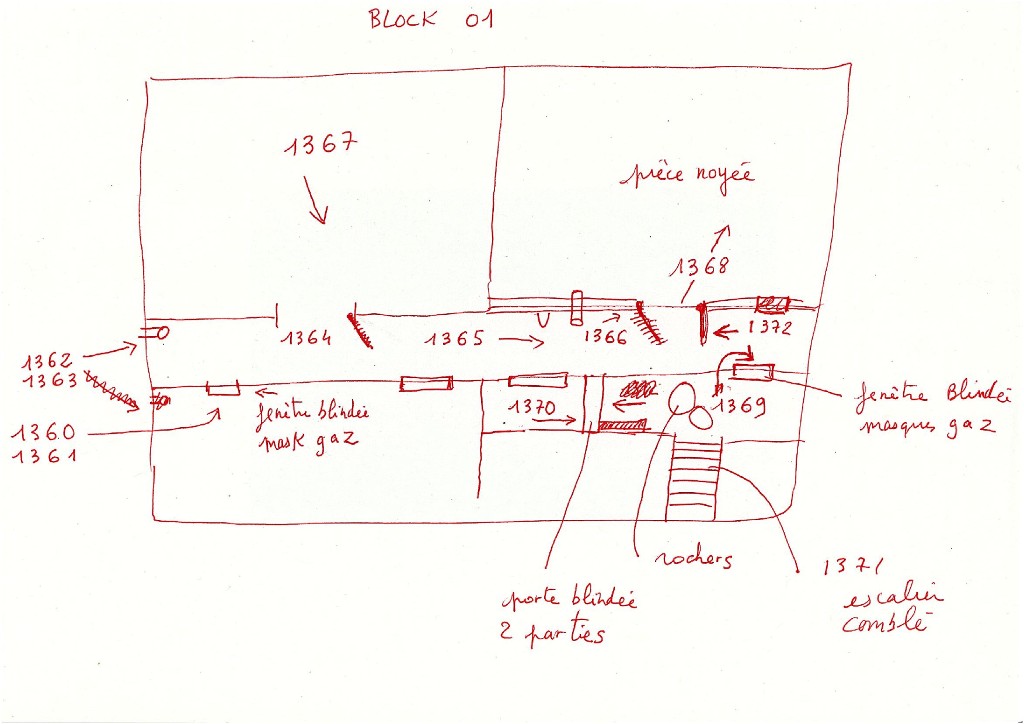 BLOCK 01
1367
pièce noyée
1368
1364
1365
1366
1372
1362
1363
1360
1361
fenêtre blindée
mask gaz
1370
1369
fenêtre Blindée
masques gaz
rochers
porte blindée
2 parties
1371
escalier
comblé